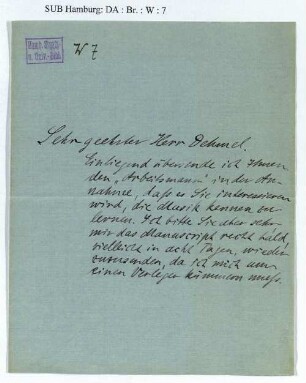 SUB Hamburg: DA : Br. : W : 7
W 7
Sehr geehrter Herr Dehmel.
Einliegend übersende ich Ihnen
den „Arbeitsmann" in der An-
nahme, daß es Sie interessieren
wird, die Musik kennen zu
lernen. Ich bitte Sie aber sehr
mir das Manuscript recht bald,
vielleicht in acht Tagen, wieder
zuzusenden, da ich mich um
einen Verleger kümmern muß.